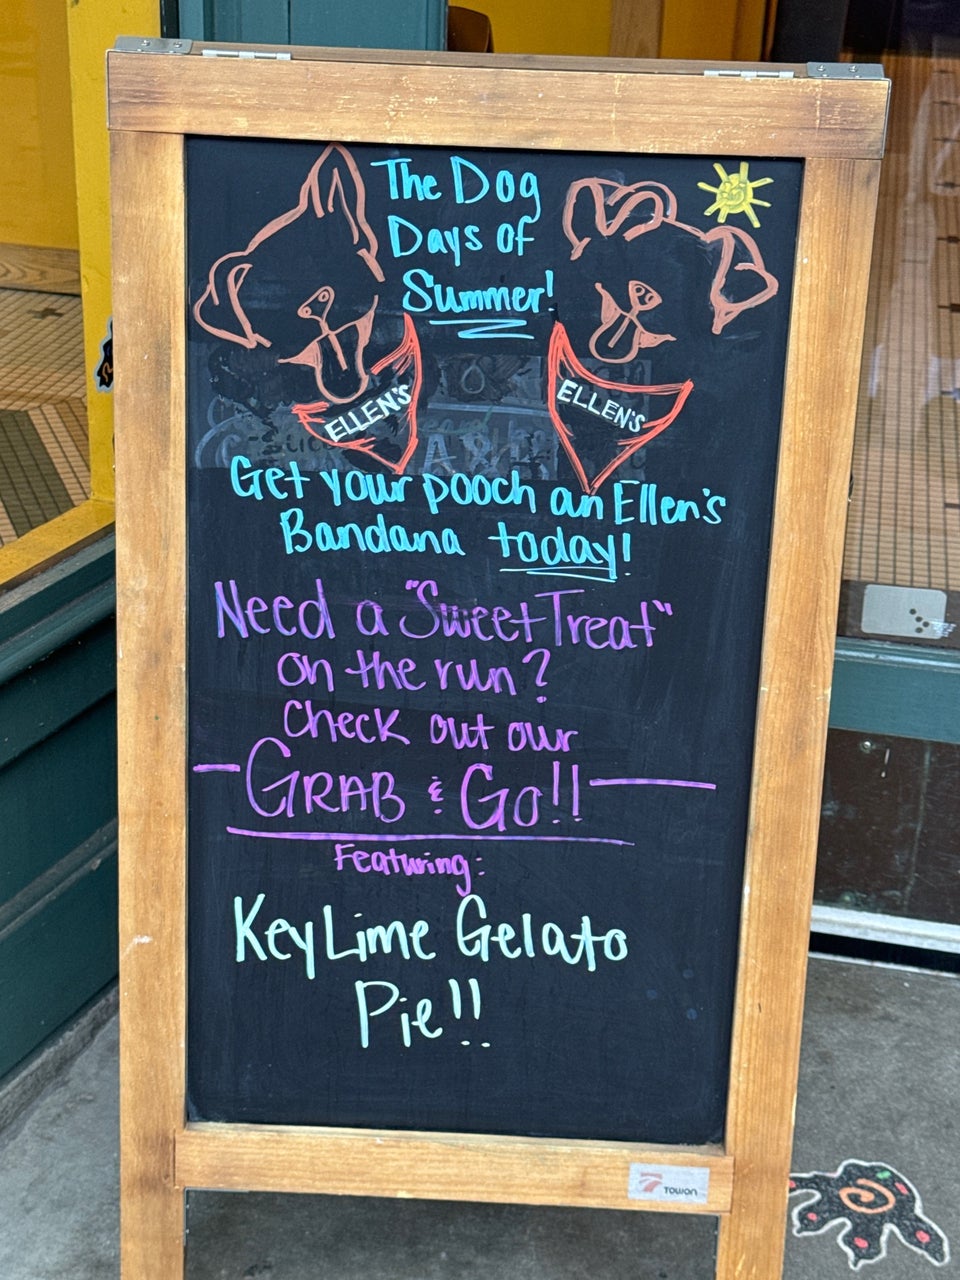 The Dog
Days of
Summer!
ELLEN'S
ELLEN'S
Get your pooch an Ellen's
Bandana today!
Need a "Sweet Treat"
on the run?
Check out our
GRAB & GO!!
Featuring:
Key Lime Gelato
Pie!!
TOWON